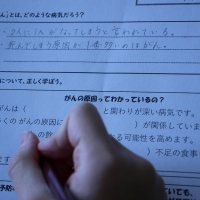 ん」とは、どのような病気だろう？
・2人に1人がなってしまうと言われている。
・死んでしまう原因が1番多いのはがん。
について、正しく学ぼう。
がんの原因ってわかっているの？
がんは（　　　　　）と関わりが深い病気です。
くのがんの原因に　　　　　）が関係していま
る可能性を高めます。
）不足の食事
予防
いても、